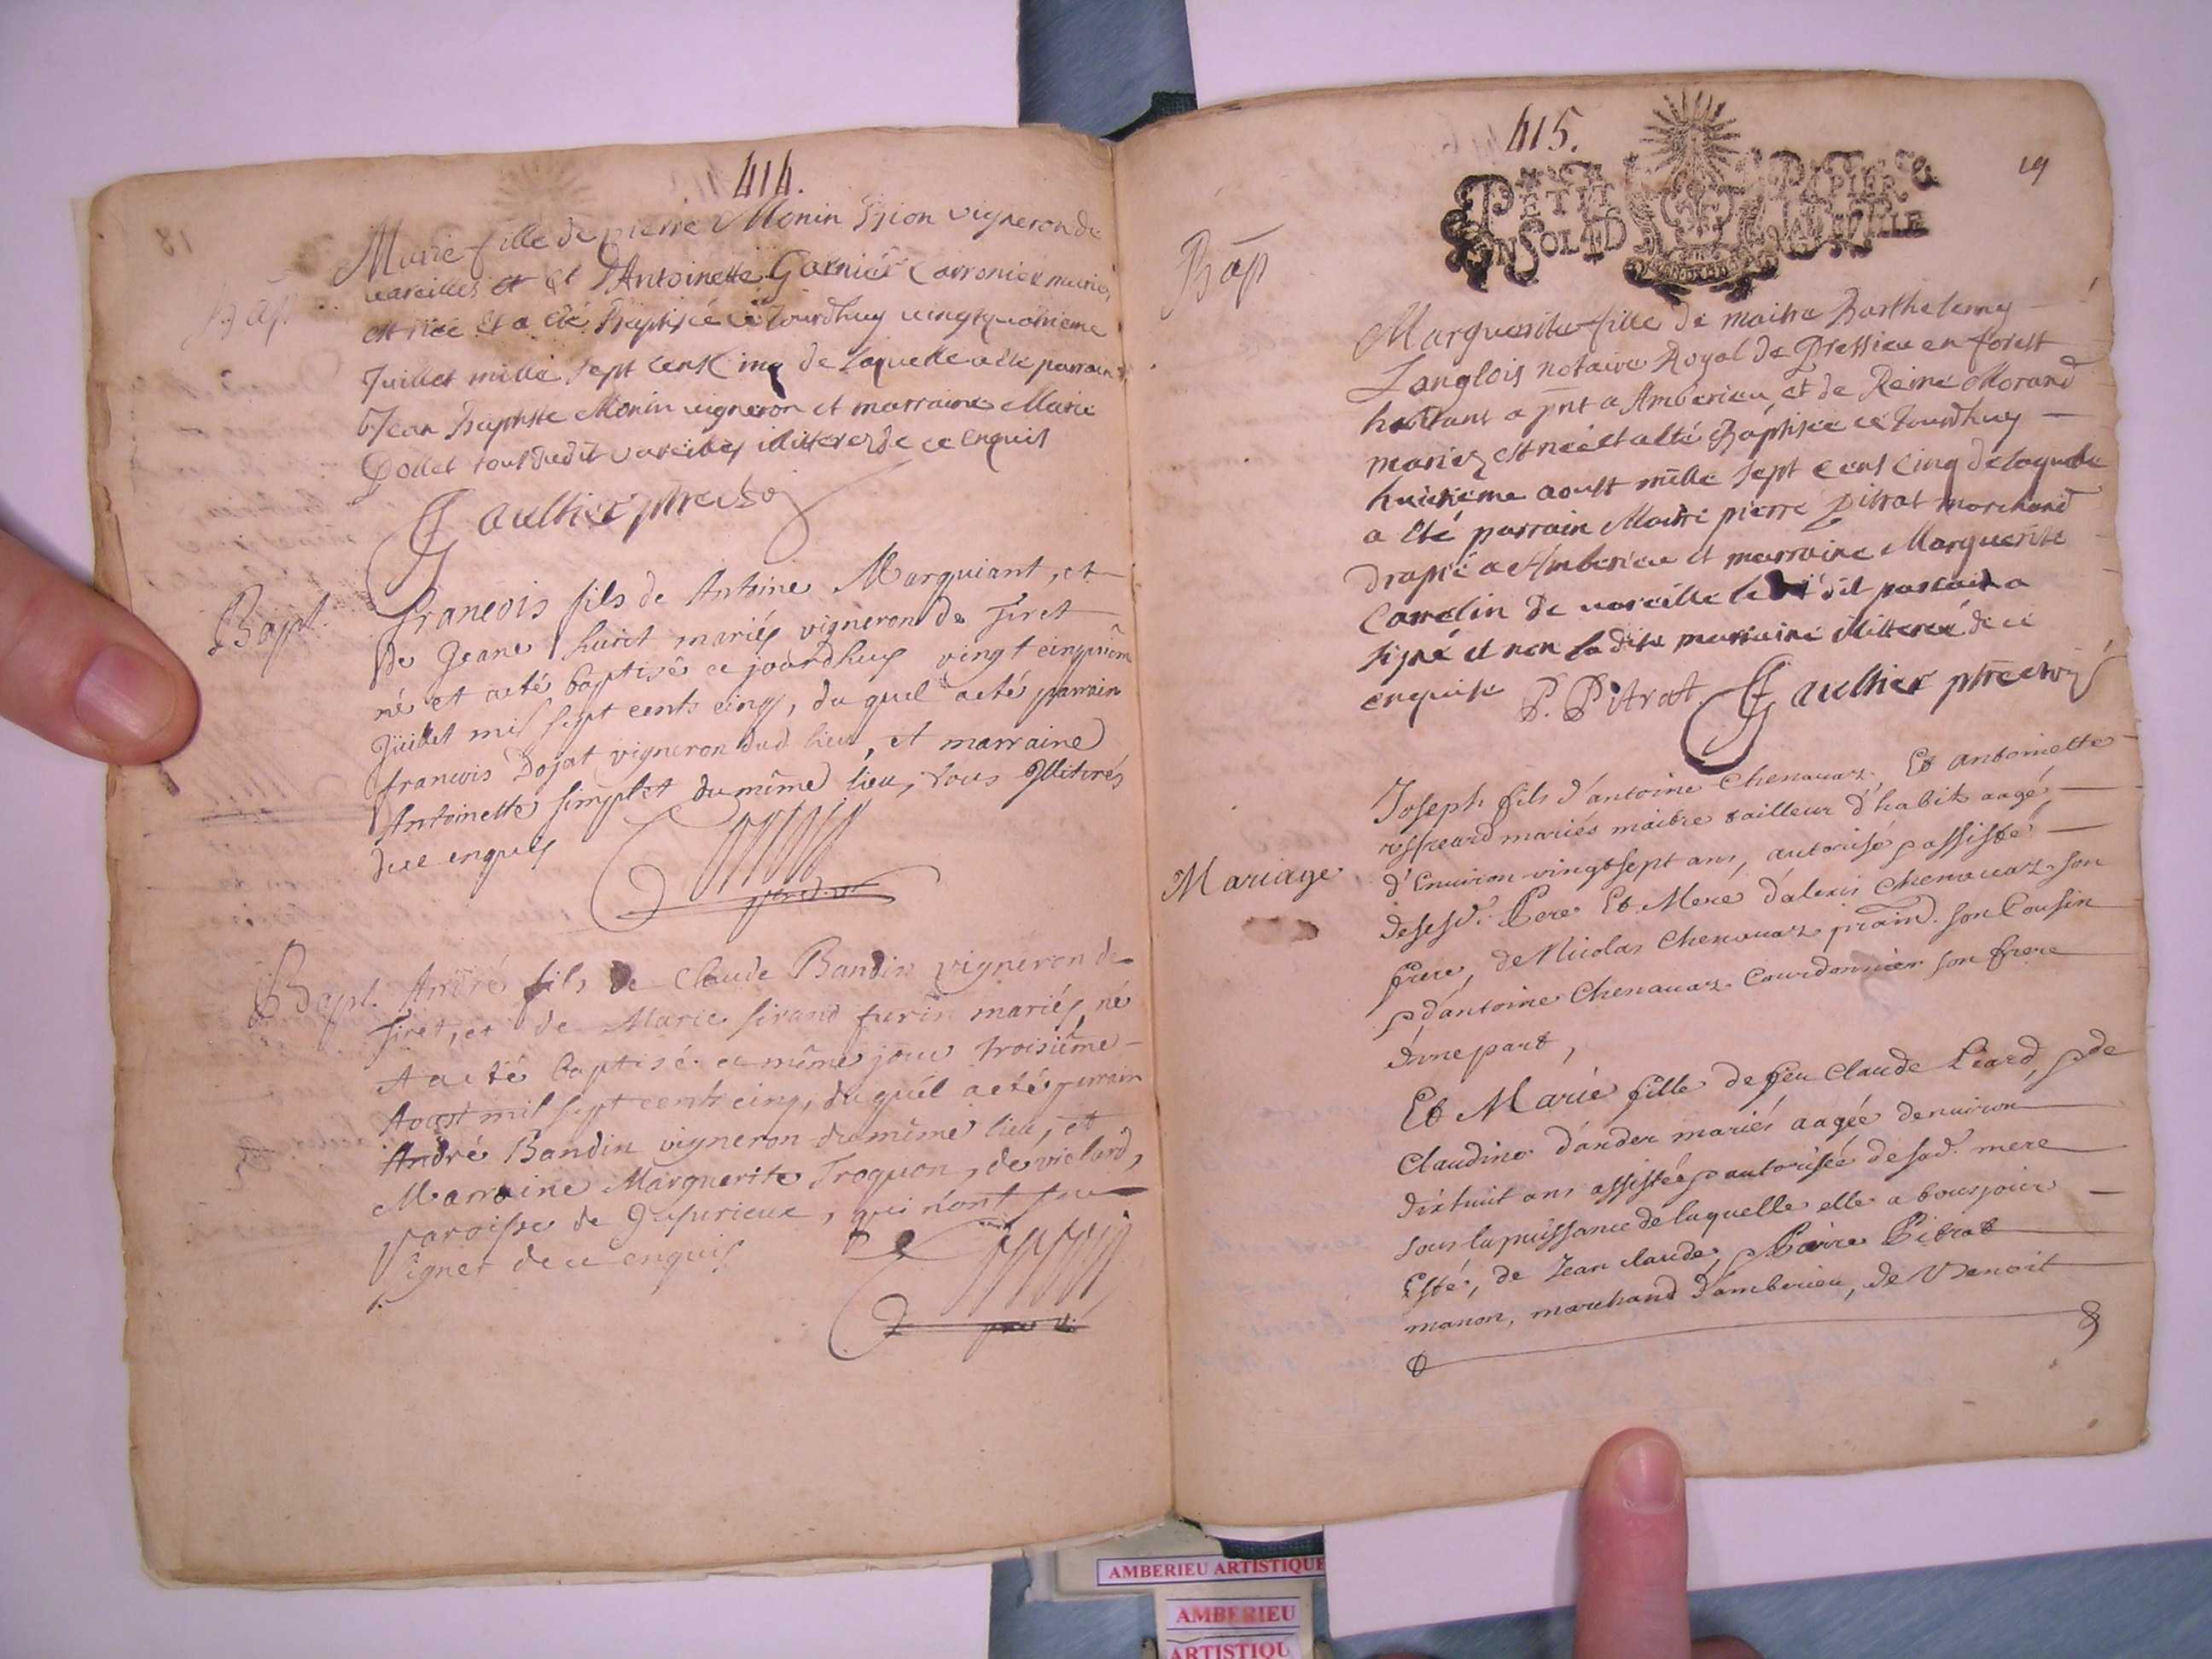 414.
Bap
Marie fille de pierre Monin Gion vigneron de
vareilles et Et d'Antoinette Garnier Carronier mariez
est née Et a eté Baptisée ce Jourdhuy vingtquatrieme
Juillet mille sept cens Cinq de Laquelle a eté parrain
Jean Baptiste Monin vigneron et marraine Marie
Dollet tout dudit vareilles illitterez de ce Enquis
Gaulthier ptre
Bapt.
francois fils de Antoine Marguiant, et
de Jeane Suict mariés vigneron de Tiret
né et aeté baptisé ce jourdhuy vingt cinquiême
Juillet mil sept cents cinq, du quel aeté parrain
francois Dojat vigneron dud lieu, et marraine
Antoinette simplet du même lieu, tous Illiterés
de ce enquis
Bapt.
André fils de Claude Bandin vigneron de
Tiret, et de Marie Sirand furin mariés, né
et aeté baptisé ce même jour troisiême
Aoust mil sept cents cinq, du quel aeté parrain
André Bandin vigneron du même lieu, et
Marraine Marguerite Troquon, de vielard,
paroisse de Jujurieux, qui n'ont sceu
signer de ce enquis
415.
19
PETIT PAPIER
UN SOL LA FEUILLE
Bap
Marguerite fille de maitre Barthelemy
Langlois notaire Royal de Pressieu en forest
habitant a pnt a Amberieu et de Reine Morand
mariez est née et a eté Baptisée ce Jourdhuy
huitieme aoust mille sept cens Cinq de laquelle
a eté parrain Maitre pierre Pitrat marchand
drapié a Amberieu et marraine Marguerite
Carrelin de vareille le dit parrain a
signé et non la dite marraine illitterée de ce
enquise P. Pitrat. Gaulthier ptre
Mariage
Joseph fils d'antoine Chenavaz, Et antoinette
mariés maitre tailleur d'habits aagé
d'Environ vingtsept ans, autorisé & assisté
de sesd. Pere Et Mere d'alexis Chenavaz son
frere, de Nicolas Chenavaz son Cousin
& d'antoine Chenavaz Courdonnier son frere
d'une part,
Et Marie fille de feu Claude Liard, & de
Claudine dander mariés aagée denuiron
dixhuit ans assistée & autorisée de sad. mere
sous la puissance de laquelle elle a tousjours
Esté, de Jean claude, & Pierre Pitrat
manon, marchand d'amberieu, de Benoit
AMBERIEU ARTISTIQUE
AMBERIEU
ARTISTIQU